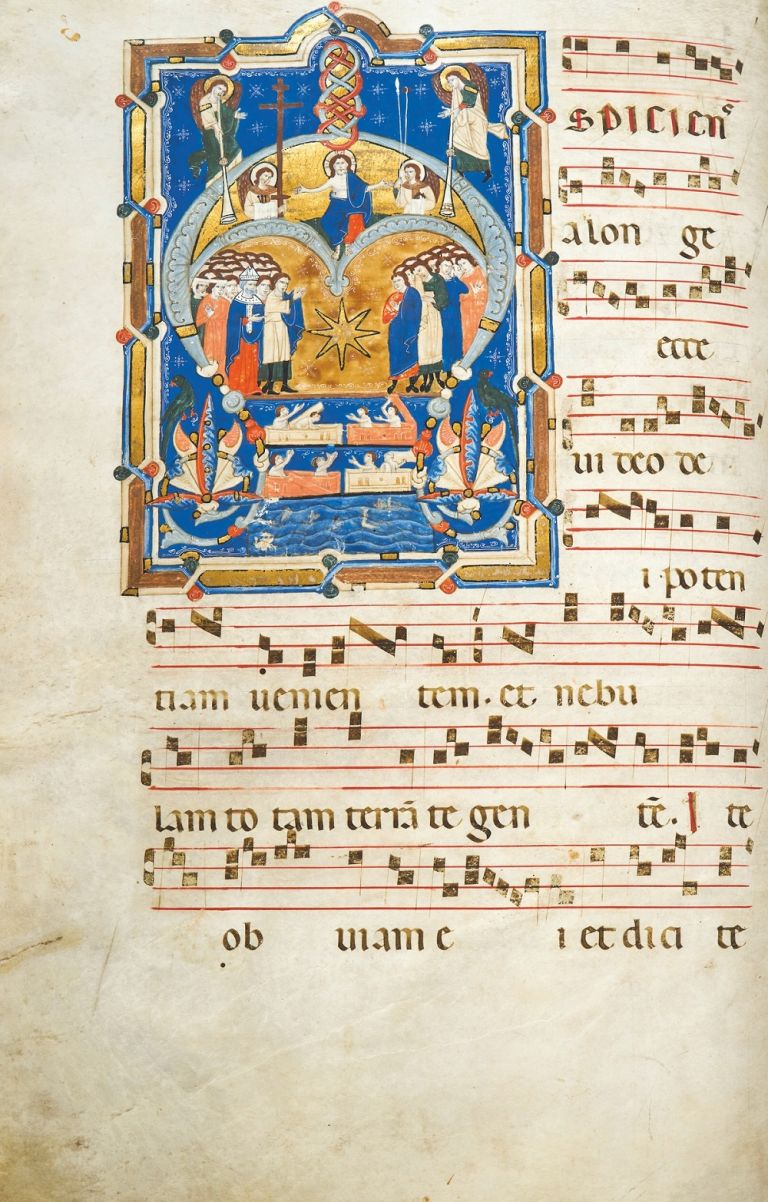 SPICIENS
alon ge
ecce
ui deo de
i · po ten
tiam uenien tem · et nebu
lam to tam terrā te gen tē. I te
ob uiam e i et dici te